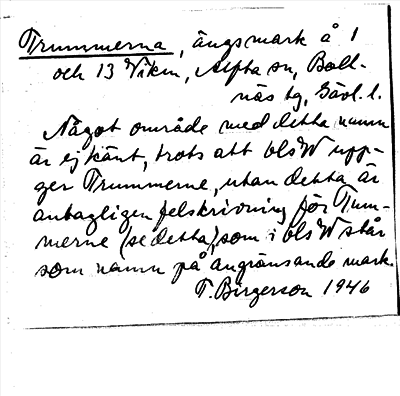 Trummerna, ängsmark å 1
och 13 Viken, Alfta sn, Boll-
näs tg, Gävl. l.
Något område med detta namn
är ej känt, trots att ols W upp-
ger Trummerne, utan detta är
antagligen felskrivning för Tum-
merne (se detta), som i ols W står
som namn på angränsande mark.
T. Birgerson 1946